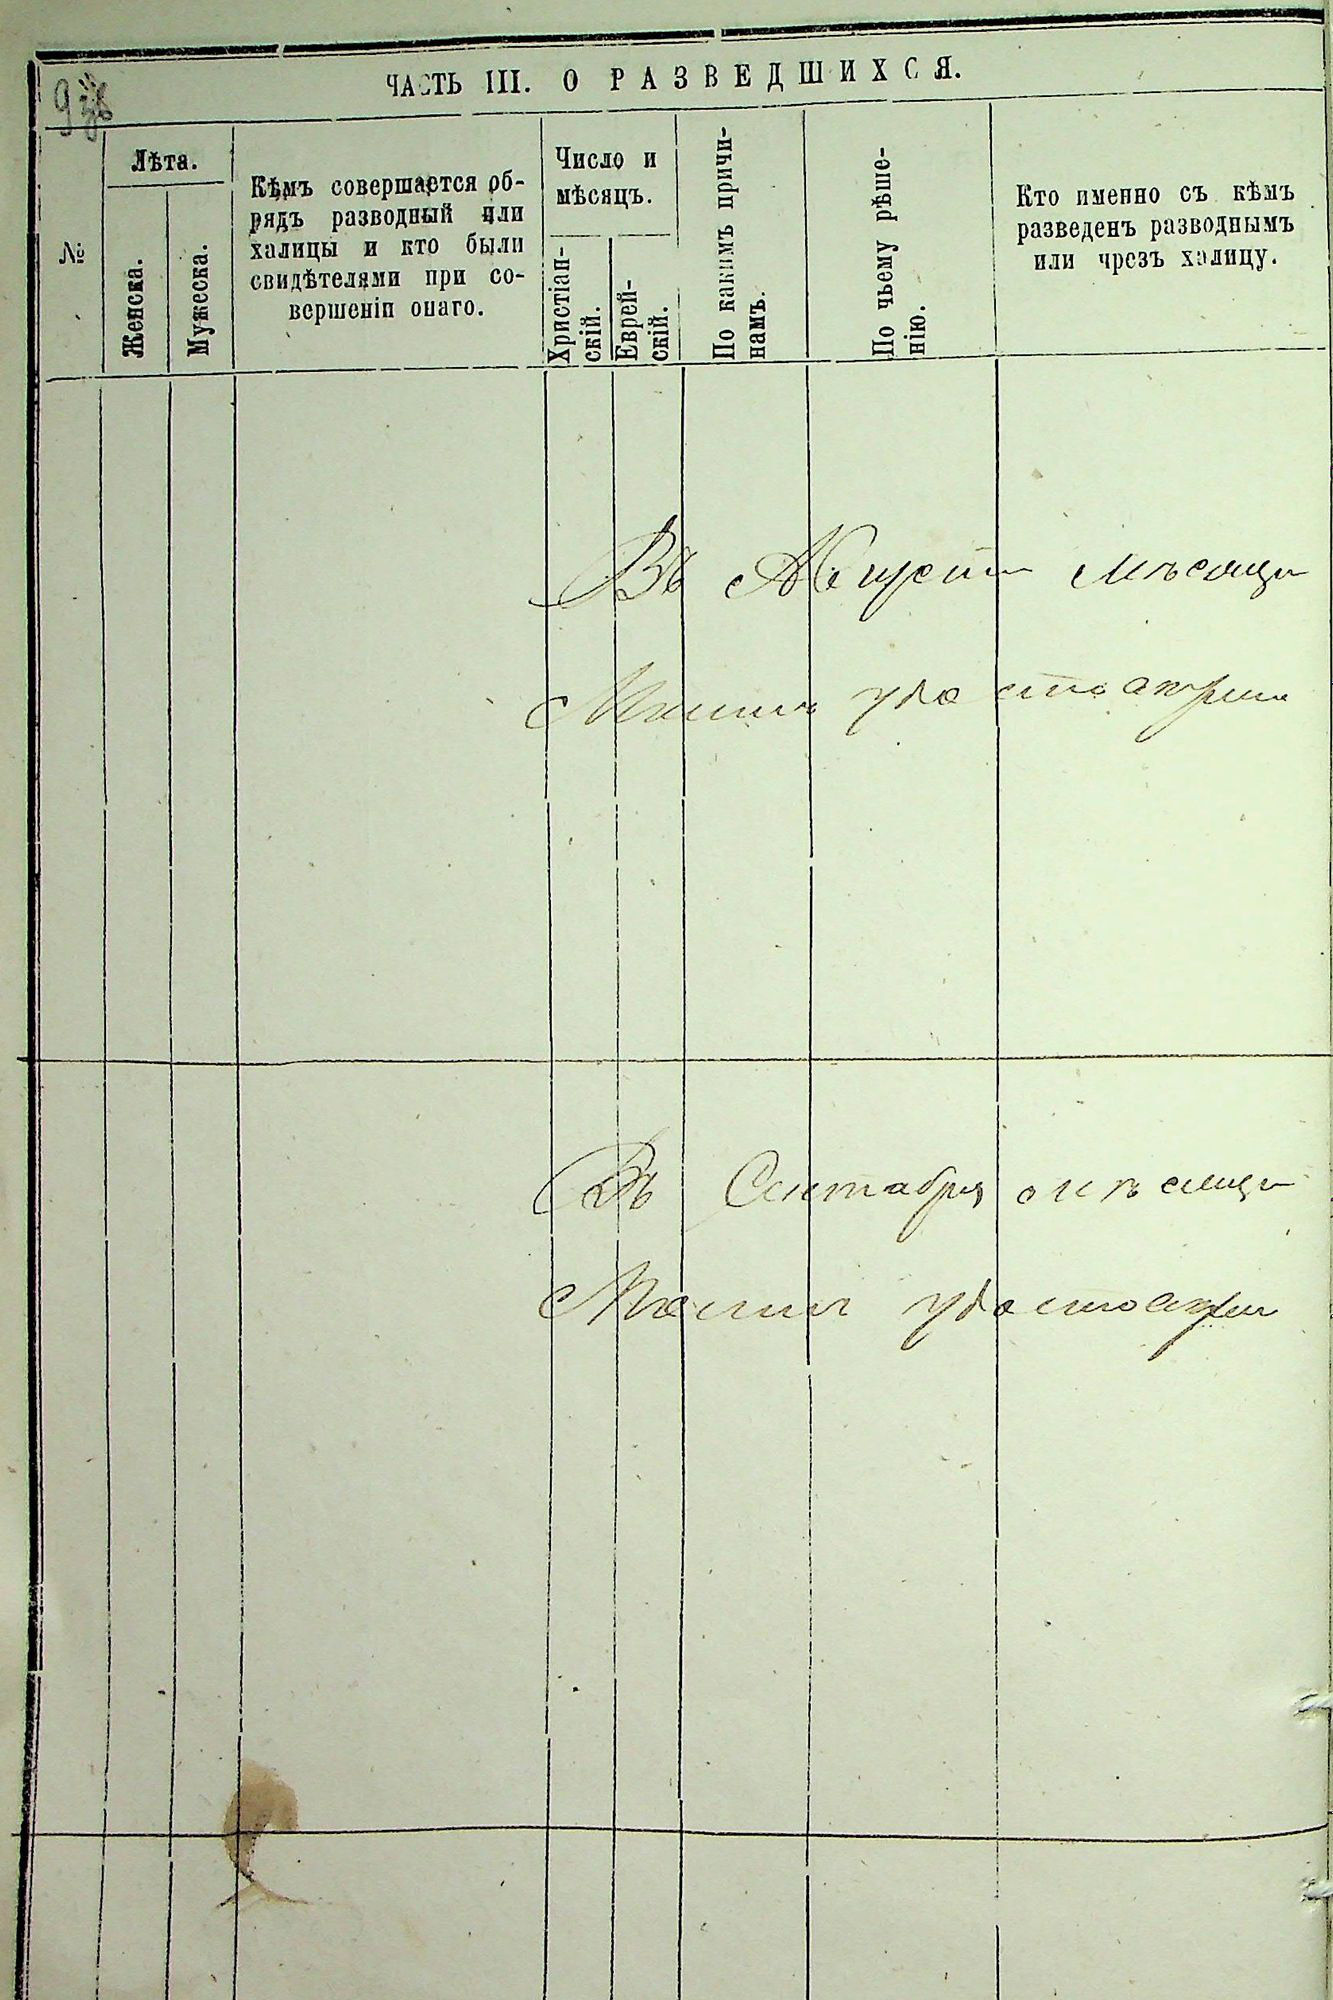 ЧАСТЬ III. О РАЗВЕДШИХСЯ.
№
Лѣта.
Женска.
Мужеска.
Кѣмъ совершается об-
рядъ разводный или
халицы и кто были
свидѣтелями при со-
вершеніи онаго.
Число и
мѣсяцъ.
Христіан-
скій.
Еврей-
скій.
По какимъ причи-
намъ.
По чьему рѣше-
нію.
Кто именно съ кѣмъ
разведенъ разводнымъ
или чрезъ халицу.
Въ Августѣ мѣсяцѣ
Въ Сентябрѣ мѣсяцѣ